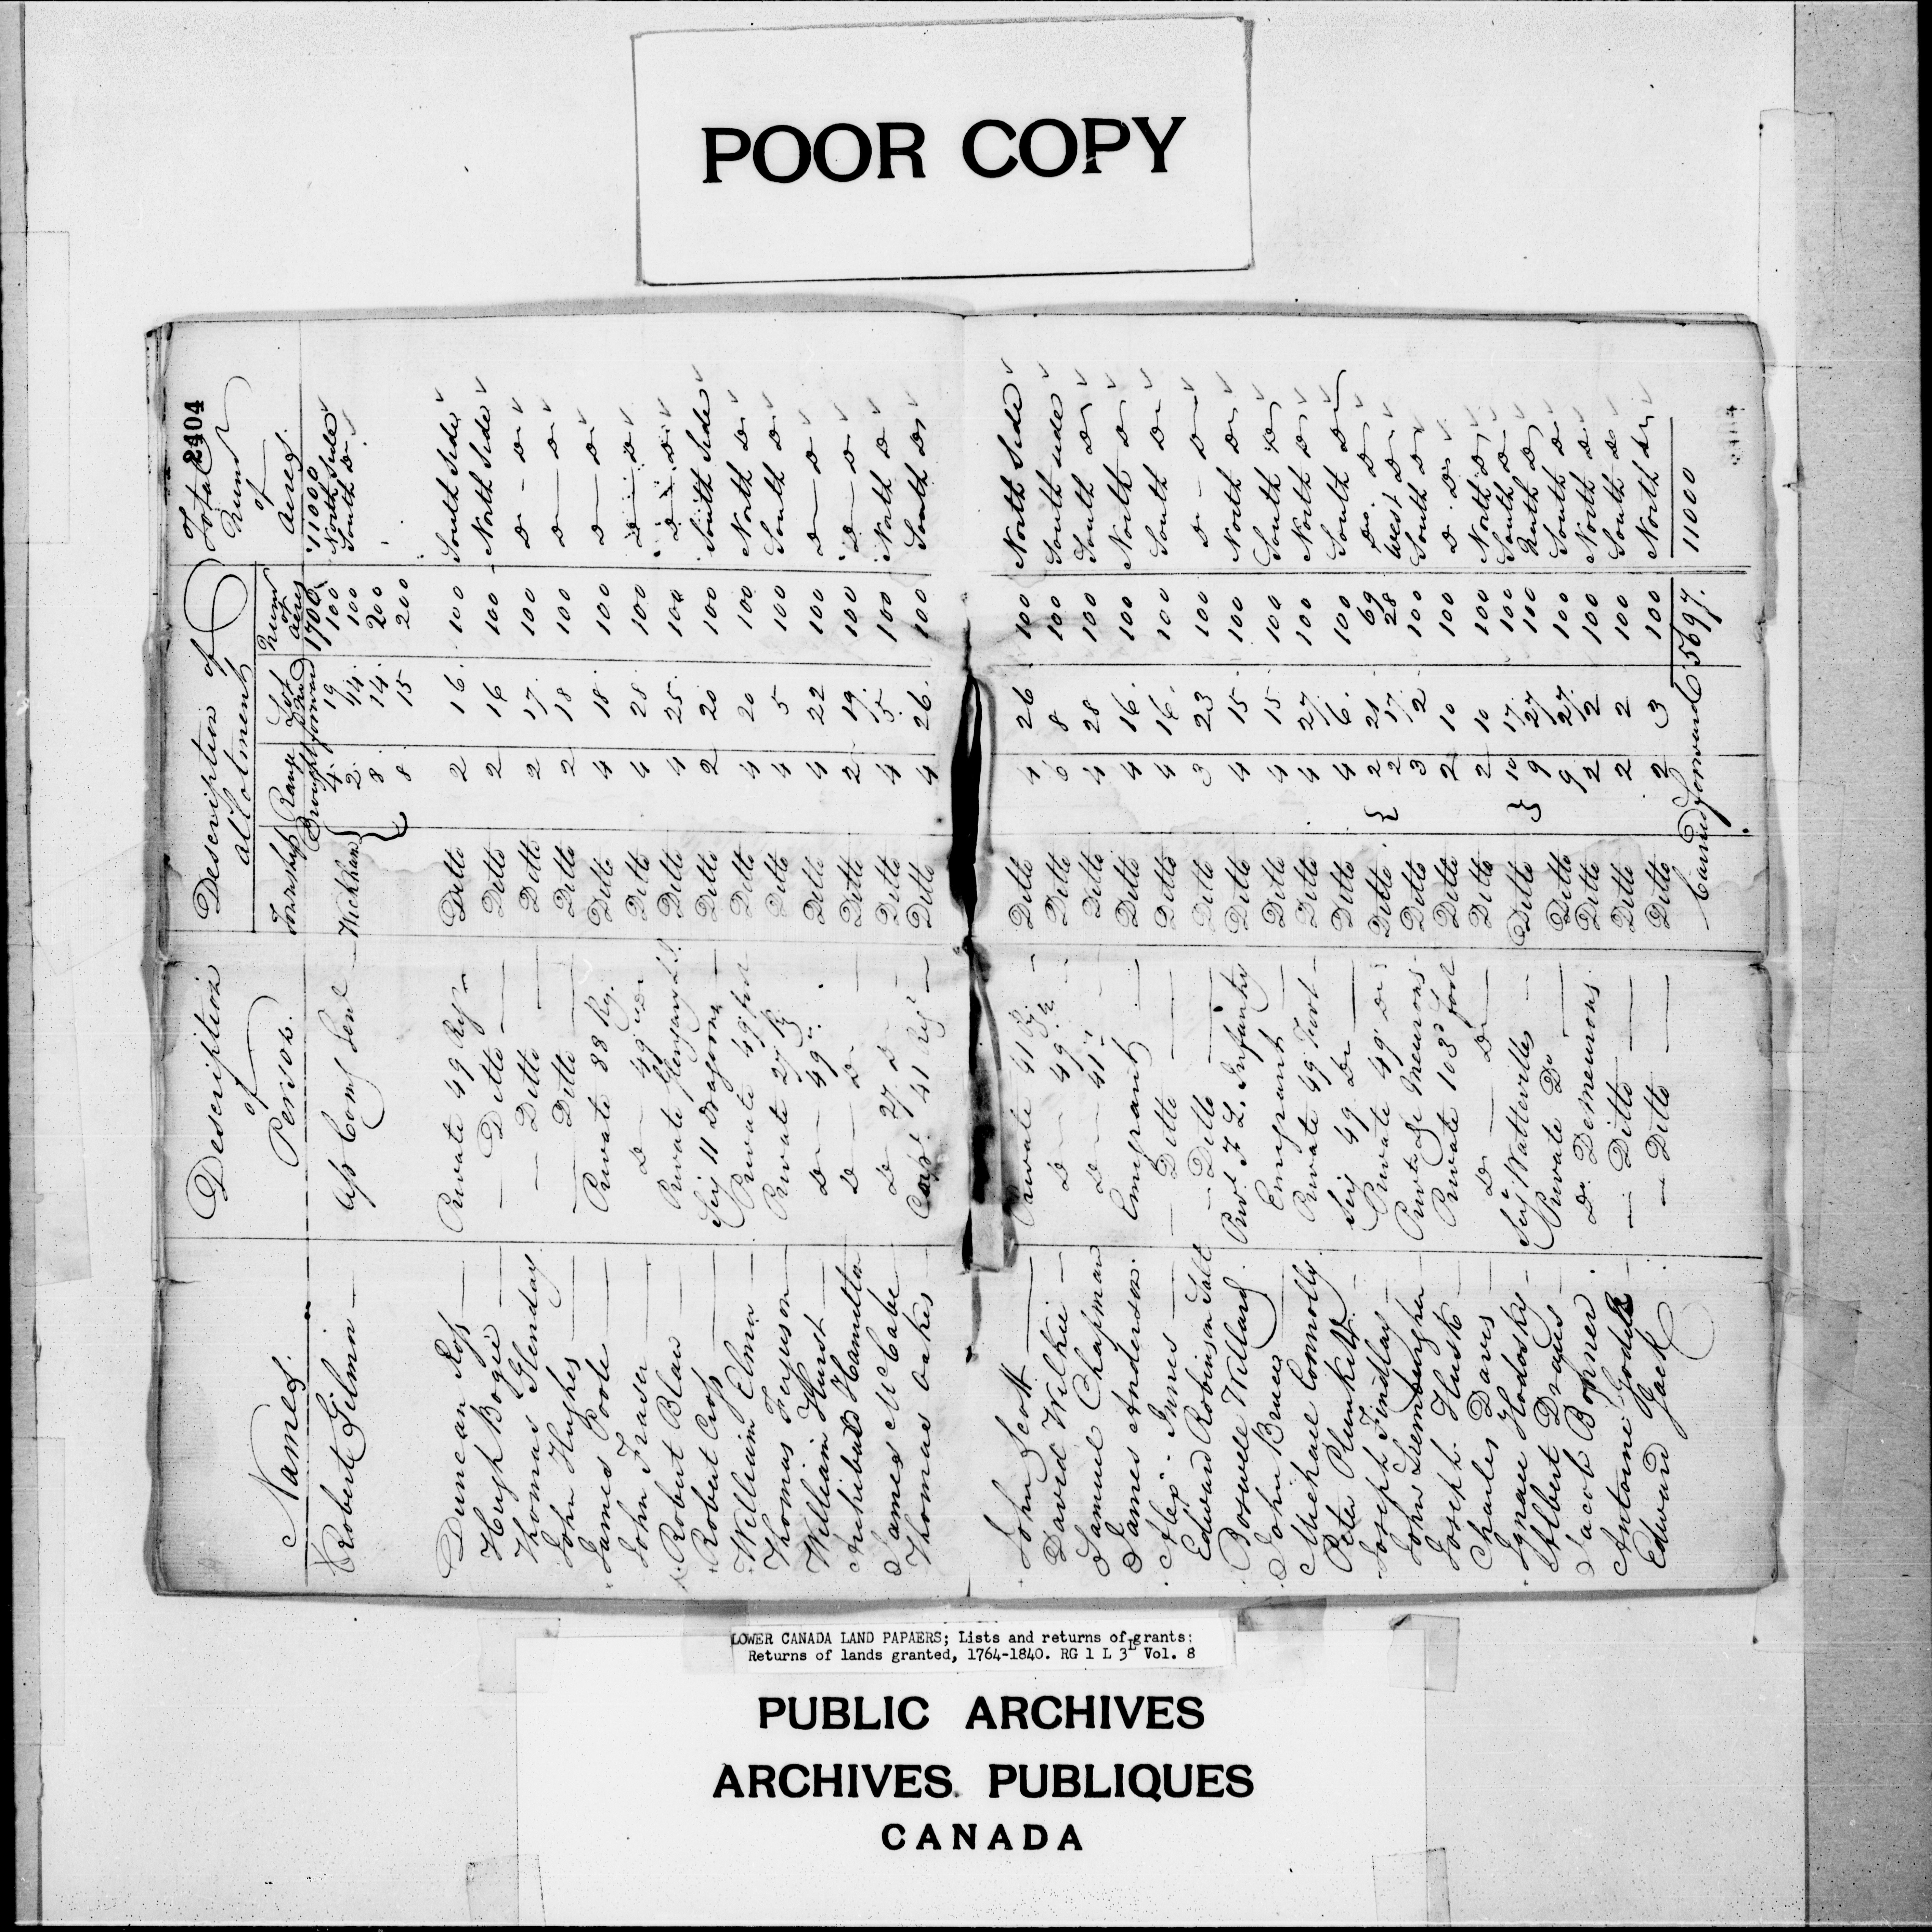 POOR COPY
2404
Names. Description of Person. Description of allotment Total Numr of acres.
Township Range Lot Numr of acres
Brought forward 1700 11000
Robert Gilmor Ass Comy Genl Wickham 4. 19 100 North Side
2. 44. 100 South Do
8 14. 200
8 15 200
Duncan Ross Private 49 Regt Ditto 2 16. 100 South Side
Hugh Bogie Ditto Ditto 2 16 100 North Side
Thomas Glenday Ditto Ditto 2 17. 100 Do Do
John Hughes Ditto Ditto 2 18 100 Do Do
James Poole Private 88 Rg. Ditto 4 18. 100 Do Do
John Fraser Do 49 Do Ditto 4 28 100 Do Do
Robert Blair Private Glengary L.I. Ditto 4 25. 100 Do Do
Robert Cross Serj 11 Dragoons Ditto 2 20 100 South Side
William Elmor Private 49 foot Ditto 4 20 100 North Do
Thomas Ferguson Private 27 Rg Ditto 4 5 100 South Do
William Hurst Do 49 Ditto 4 22 100 Do Do
Archibald Hamilton Do Do Ditto 2 19. 100 Do Do
James McCabe Do 27 Do Ditto 4 5. 100 North Do
Thomas Oakes Corpl. 41 Reg Ditto 4 26. 100 South Do
John Scott Private 41 Rg. Ditto 4 26 100 North Side
David Wilkie Do 49 Ditto 8 100 South side
Samuel Chapman Do 41 Ditto 4 28 100 South Do
James Anderson. Emigrant Ditto 4 16. 100 North Do
Alex. Innes Ditto Ditto 4 16. 100 South Do
Edward Robinson Salt Ditto Ditto 3 23 100 Do Do
Boswell Willard Privt F L. Infantry Ditto 4 15 100 North Do
John Bruce Emigrant Ditto 4 15 100 South Do
Michael Connolly Private 49 Foot Ditto 4 27. 100 North Do
Peter Plunkitt Serj 49 Do Ditto 4 6. 100 South Do
Joseph Findlay Private 49 Do Ditto 2 21 69 Do. Do
2 17. 28 West Do
John Private De Meurons Ditto 3 2 100 South Do
Joseph Husk Private 103d foot Ditto 2 10 100 Do. Do
Charles Davis Do Do Ditto 2 10 100 North Do
Ignace Hodosky Serj Wattevilles Ditto 10 17. 100 South Do
9 27 100 North Do
Albert Draqus Private Do Ditto 9 27. 100 South Do
Jacob Bonner Do Demeurons Ditto 2 2 100 North Do
Antoine Ditto Ditto 2 2 100 South Do
Edward Jack Ditto Ditto 2 3 100 North Do
Carried forward 5697. 11000
LOWER CANADA LAND PAPAERS; Lists and returns of grants:
Returns of lands granted, 1764-1840. RG 1 L 3L Vol. 8
PUBLIC ARCHIVES
ARCHIVES PUBLIQUES
CANADA